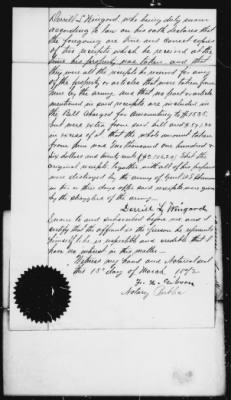 Derrill L Wingard, who being duly sworn
according to law on his oath declares that
the foregoing are true and correct copies
of the receipts which he received at the
time his property was taken and that
they were all the receipts he received for any
of the property or articles that were taken from
him by the army, and that no part or article
mentioned in said receipts are included in
the Bill charged for amounting to $1535.
but were taken from said bill and
in excess of it that the whole amount taken
from him was two thousand one hundred &
six dollars and ninety cents That the
original receipts together with all of his papers
were destroyed by the army of Genl
in two or three days after said receipts were given
by the of the army.
Derrill L Wingard
Sworn to and subscribed before me and I
certify that the affiant is the person he represents
himself to be is reputable and credible that I
have no interest in this matter
Witness my hand and Notarial seal
this 15th day of March 1872
Notary Public